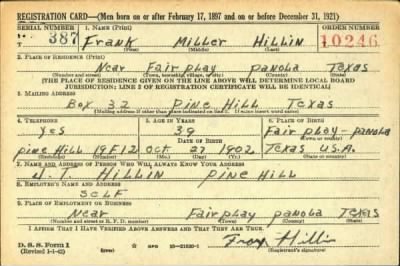 REGISTRATION CARD—(Men born on or after February 17, 1897 and on or before December 31, 1921)
SERIAL NUMBER 1. NAME (Print) ORDER NUMBER
T 387 Frank Miller Hillin 10246
(First) (Middle) (Last)
2. PLACE OF RESIDENCE (Print)
Near Fairplay Panola Texas
(Number and street) (Town, township, village, or city) (County) (State)
[THE PLACE OF RESIDENCE GIVEN ON THE LINE ABOVE WILL DETERMINE LOCAL BOARD
JURISDICTION; LINE 2 OF REGISTRATION CERTIFICATE WILL BE IDENTICAL]
3. MAILING ADDRESS
Box 32 Pine Hill Texas
[Mailing address if other than place indicated on line 2. If same insert word same]
4. TELEPHONE 5. AGE IN YEARS 6. PLACE OF BIRTH
Yes 39 Fairplay-Panola
DATE OF BIRTH (Town or county)
Pine Hill 19F12 Oct 27 1902 Texas U.S.A.
(Exchange) (Number) (Mo.) (Day) (Yr.) (State or country)
7. NAME AND ADDRESS OF PERSON WHO WILL ALWAYS KNOW YOUR ADDRESS
J. T. Hillin Pine Hill
8. EMPLOYER'S NAME AND ADDRESS
Self
9. PLACE OF EMPLOYMENT OR BUSINESS
Near Fairplay Panola Texas
(Number and street or R. F. D. number) (Town) (County) (State)
I AFFIRM THAT I HAVE VERIFIED ABOVE ANSWERS AND THAT THEY ARE TRUE.
D. S. S. Form 1
(Revised 1-1-42) GPO 16—21630-1 Hillin
(Registrant's signature)